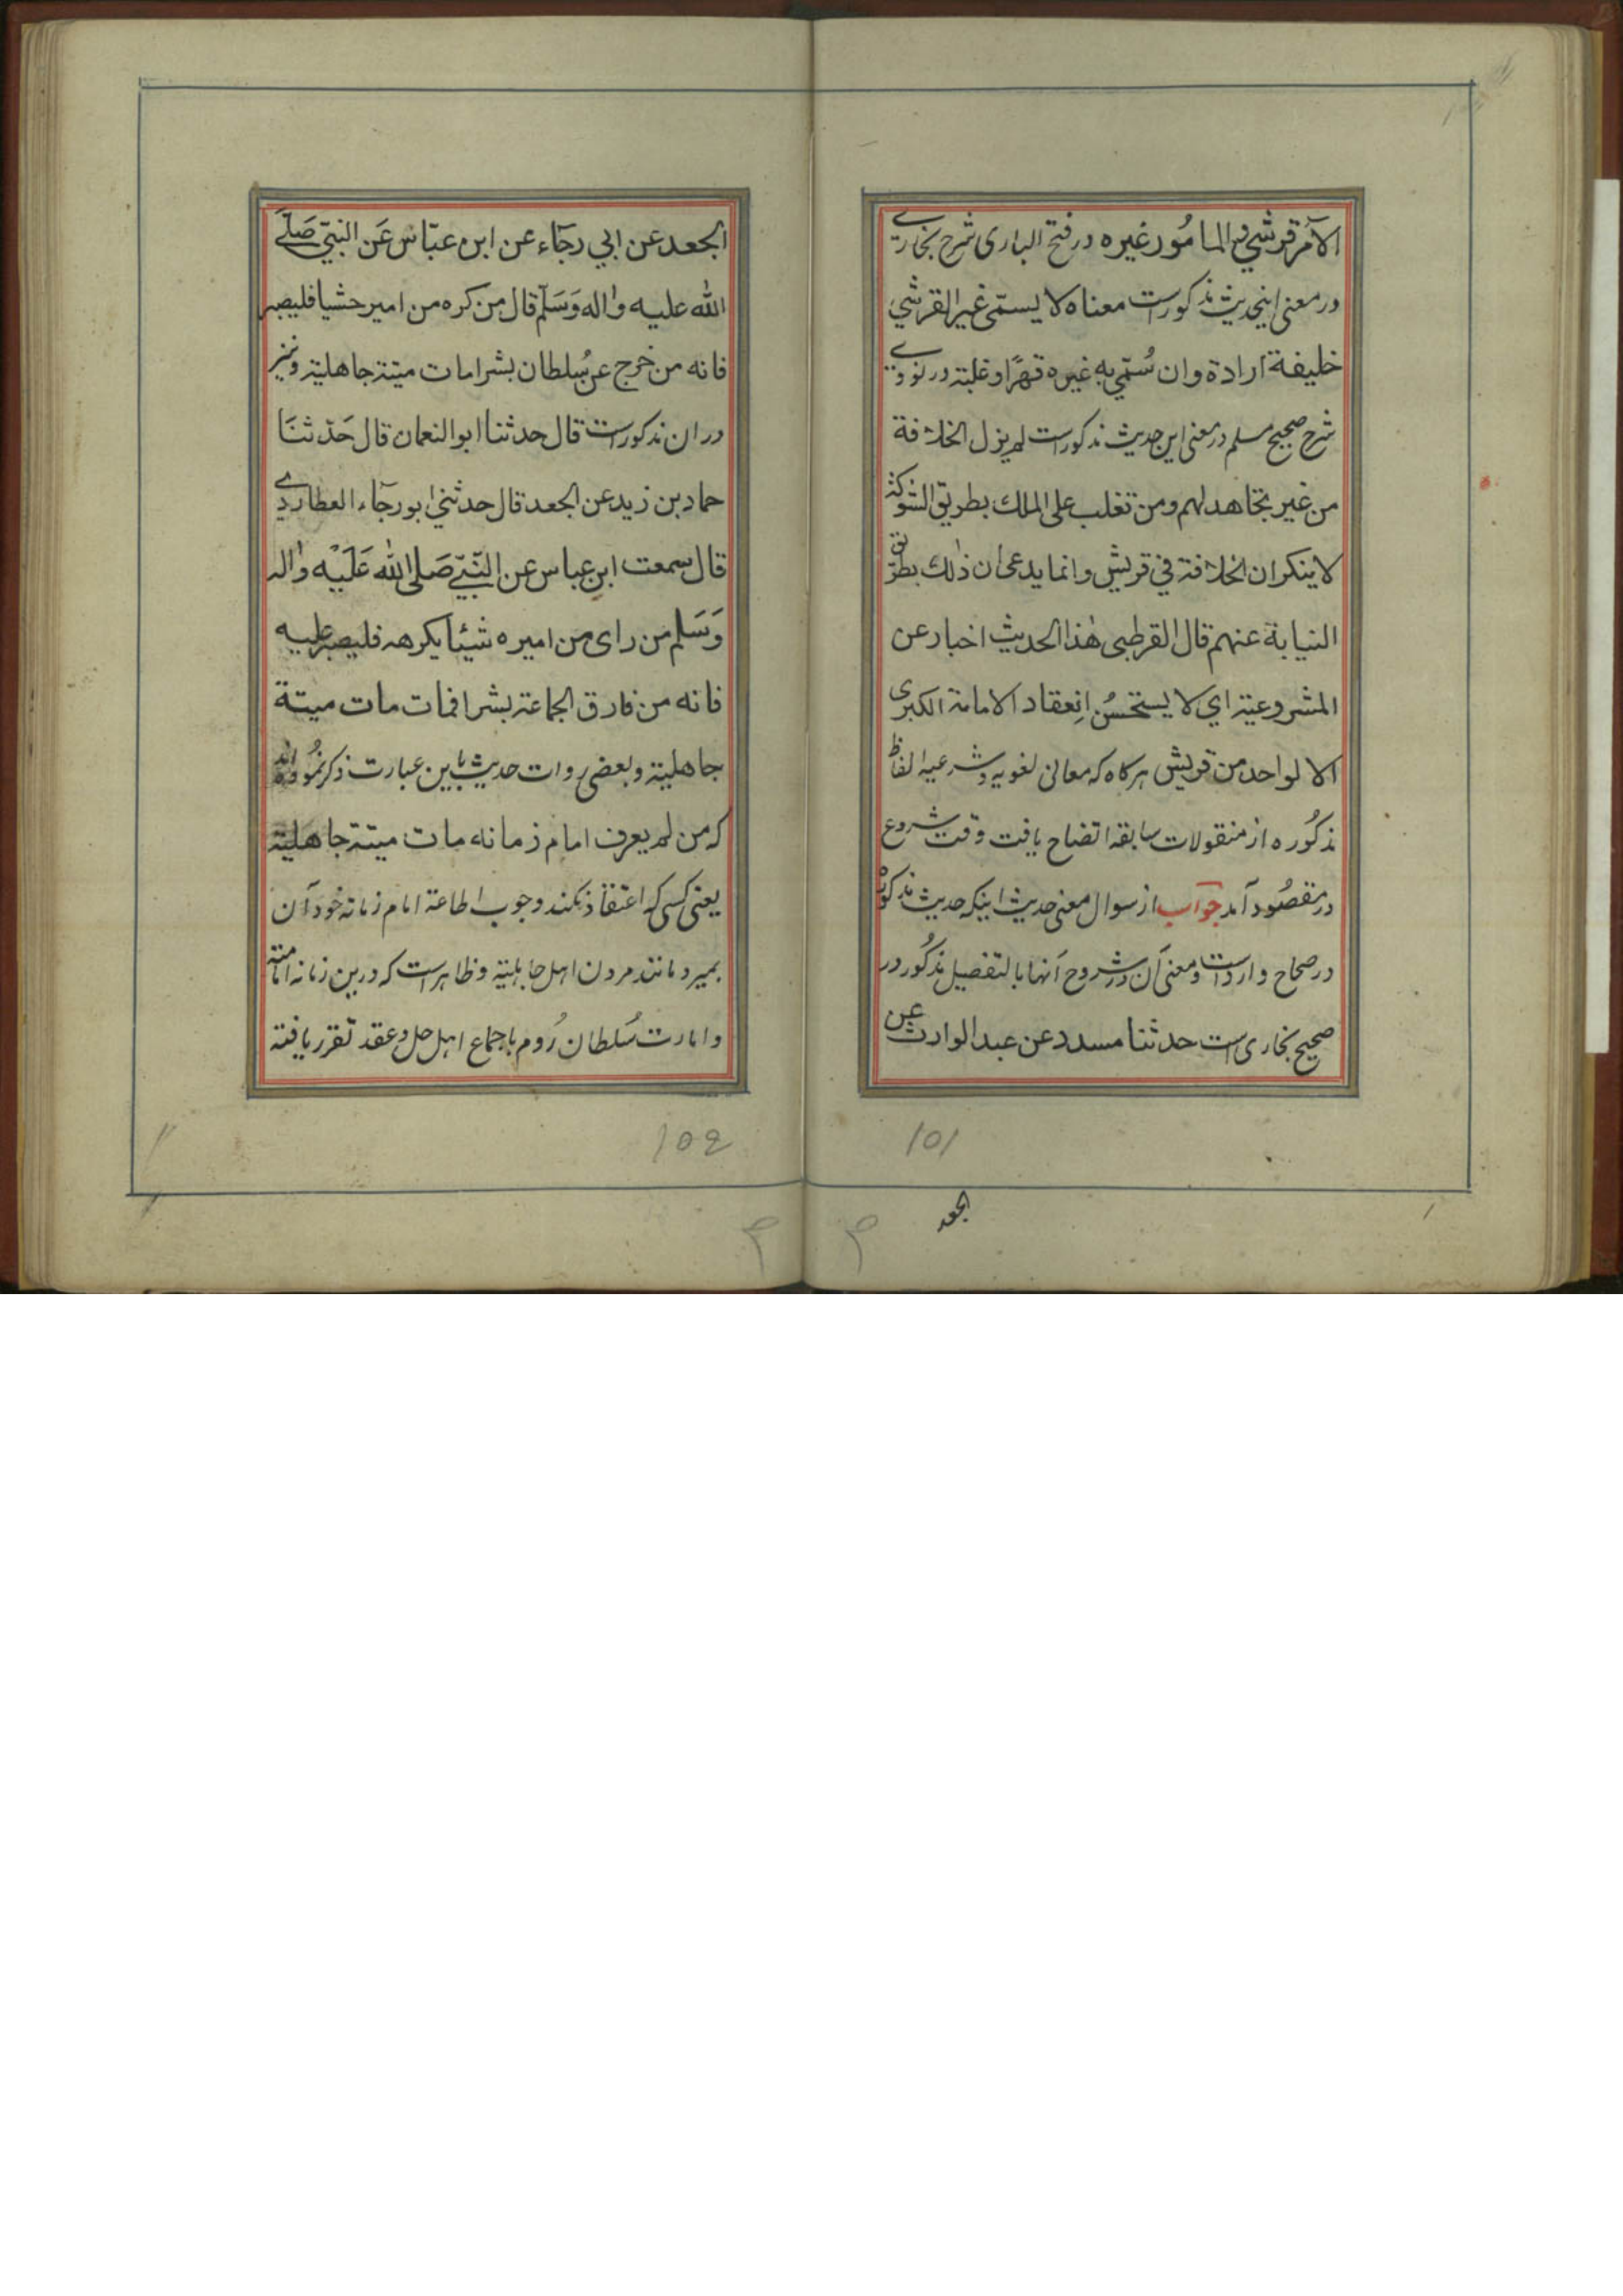 الآمر قرشی و المامُور غیره در فتح الباری شرح بخاری
در معنی اینحدیث مذکورست معناه لا یسمّی غیر القرشي
خلیفة ارادة وان سُمّي به غیره قهرًا وغلبة در نووی
شرح صحیح مسلم در معنی این حدیث مذکورست لم یزل الخلافة
من غیر تجاهد لهم ومن تغلب علی الملك بطریق الشوکة
لا ینکر ان الخلافة في قریش وانما یدعی ان ذٰلك بطریق
النیابة عنهم قال القرطبی هٰذا الحدیث اخبار عن
المشروعیة اي لا یستحسُن اِنعقاد الامامة الکبری
الا لواحد من قریش هرکاه که معانی لغویه و شرعیه الفاظ
مذکُوره از منقولات سابقه اتضاح یافت وقت شروع
در مقصُود آمد جوآب از سوال معنی حدیث اینکه حدیث مذکور
در صحاح واردست ومعنی آن در شروح آنها بالتفصیل مذکُور در
صحیح بخاری است حدثنا مسدد عن عبد الوارث عن
101
الجعد
الجعد عن ابي رجآء عن ابن عبّاس عَن النبيّ صَلّے
الله علیه واٰله وَسَلّم قال من کره من امیر حشیا فلیصبر
فانه من خرج عن سُلطان بشرا مات میتة جاهلیة ونیز
در ان مذکورست قال حدثنا ابو النعمان قال حَدّثنَا
حماد بن زید عن الجعد قال حدثني ابو رجآء العطاردي
قال سمعت ابن عباس عن النّبيّ صَلی الله عَلَیْه واٰله
وَسَلم من رای من امیره شیئا یکرهه فلیصبر علیه
فانه من فارق الجماعة بشرا فمات مات میتة
جاهلیة وبعضی روات حدیث باین عبارت ذکر نمُوده اند
که من لم یعرف امام زمانه مات میتة جاهلیة
یعنی کسی که اعتقاد نکند وجوب اطاعة امام زمانه خود آن
بمیرد مانند مردن اهل جاهلیة وظاهرست که درین زمانه امامته
وامارت سُلطان رُوم باجماع اهل حل و عقد تقرر یافته
102